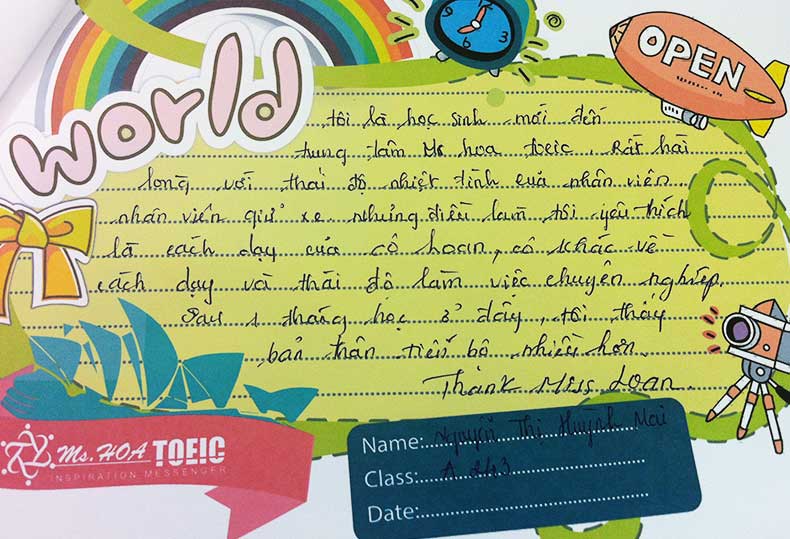 world
OPEN
tôi là học sinh mới đến
trung tâm Ms hoa toeic. Rất hài
lòng với thái độ nhiệt tình của nhân viên
nhân viên giữ xe. nhưng điều làm tôi yêu thích
là cách dạy của cô hoan, cô khác về
cách dạy và thái độ làm việc chuyên nghiệp.
Sau 1 tháng học ở đây, tôi thấy
bản thân tiến bộ nhiều hơn.
Thank Miss Loan.
Ms. HOA TOEIC
INSPIRATION MESSENGER
Name: Nguyễn Thị Huỳnh Mai
Class: A 243
Date: